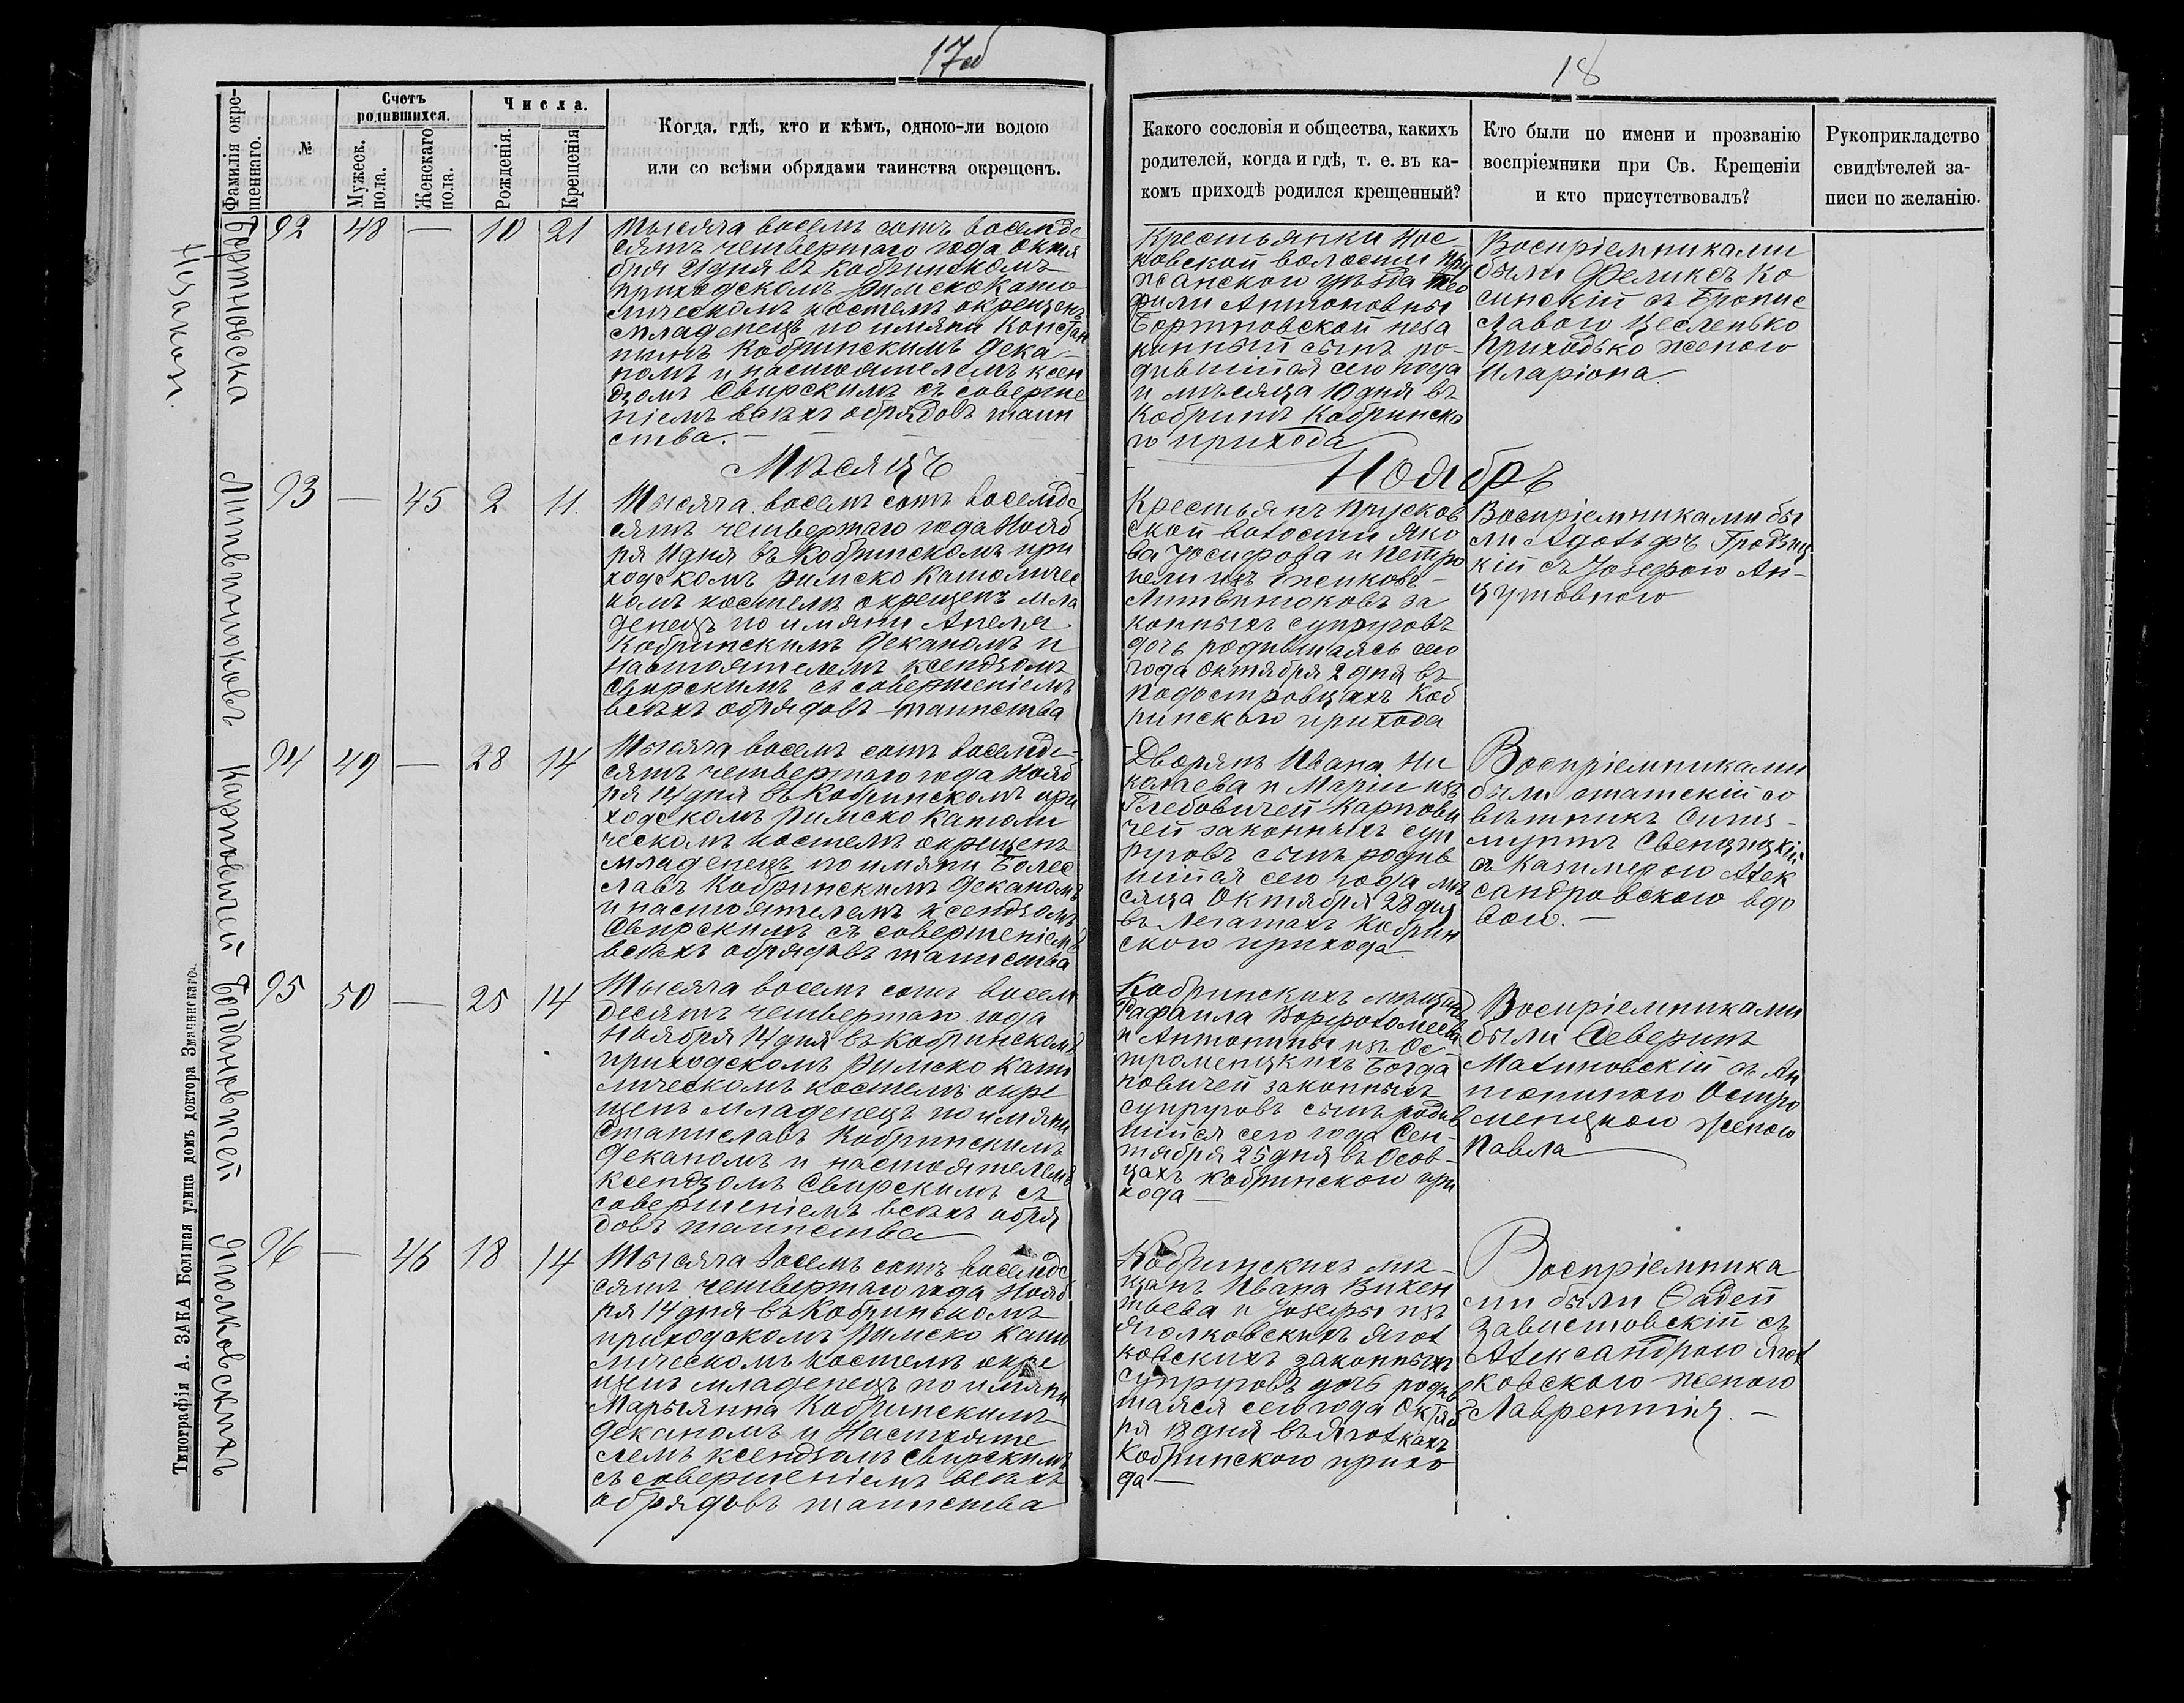 17об
18
Фамилія окре-
щеннаго.
№
Счетъ
родившихся.
Мужеск.
пола.
Женскаго
пола.
Числа.
Рожденія.
Крещенія
Когда, гдѣ, кто и кѣмъ, одною-ли водою
или со всѣми обрядами таинства окрещенъ.
Какого сословія и общества, какихъ
родителей, когда и гдѣ, т. е. въ ка-
комъ приходѣ родился крещенный?
Кто были по имени и прозванію
воспріемники при Св. Крещеніи
и кто присутствовалъ?
Рукоприкладство
свидѣтелей за-
писи по желанію.
Бортновска
Незакон.
92 48 — 10 21
Тысяча восемь сотъ восемде
сятъ четвертаго года Октя
бря 21 дня въ Кобринскомъ
приходскомъ Римско Като
лическомъ костелѣ окрещенъ
младенецъ по имяни Констан
тинъ Кобринскимъ Дека-
номъ и настоятелемъ ксен
дзомъ Свирскимъ съ соверше
ніемъ всѣхъ обрядовъ таин
ства. —
Крестьянки Нос-
ковской волости Пру
жанскаго уѣзда Тео
фили Антоновны
Бортновской неза
конный сынъ ро-
дившійся сего года
и мѣсяца 10 дня въ
Кобринѣ Кобринска
го прихода
Воспріемниками
были Феликсъ Ко
синскій съ Бронис
лавою Цесленько
Приходько женою
Иларіона.
Мѣсяцъ Ноябрь
Литвинюковъ
93 — 45 2 11.
Тысяча восемь сотъ восемде
сятъ четвертаго года Нояб
ря 11 дня въ Кобринскомъ при
ходскомъ Римско Католичес
комъ костелѣ окрещенъ мла
денецъ по имяни Анеля
Кобринскимъ Деканомъ и
настоятелемъ ксендзомъ
Свирскимъ съ совершеніемъ
всѣхъ обрядовъ таинства
Крестьянъ Прусков
ской волости Яко
ва Іосифова и Петро
нели изъ
Литвинюковъ за
конныхъ супруговъ
дочь родившаясь сего
года Октября 2 дня въ
Подостровцахъ Коб
ринскаго прихода
Воспріемниками бы
ли Адольфъ Гродзиц
кій съ Іозефою Ан-
цутовною
Карповичей
94 49 — 28 14
Тысяча восемь сотъ восемде-
сятъ четвертаго года Нояб
ря 14 дня въ Кобринскомъ при
ходскомъ Римско Католи
ческомъ костелѣ окрещенъ
младенецъ по имяни Болес
лавъ Кобринскимъ Деканомъ
и настоятелемъ ксендзомъ
Свирскимъ съ совершеніемъ
всѣхъ обрядовъ таинства
Дворянъ Ивана Ни
колаева и Маріи изъ
Глебовичей Карпови
чей законныхъ суп
руговъ сынъ родив
шійся сего года мѣ
сяца Октября 28 дня
въ Легатахъ Кобрин
скаго прихода
Воспріемниками
были статскій со
вѣтникъ Сигиз-
мунтъ Свенцицкій
съ Казимерою Алек
сандровскою вдо
вою. —
Богдановичей
95 50 — 25 14
Тысяча восемь сотъ восем
десятъ четвертаго года
Ноября 14 дня въ Кобринскомъ
приходскомъ Римско Като
лическомъ костелѣ окре
щенъ младенецъ по имяни
Станиславъ Кобринскимъ
Деканомъ и настоятелемъ
ксендзомъ Свирскимъ съ
совершеніемъ всѣхъ обря
довъ таинства
Кобринскихъ мѣщанъ
Рафаила Ворфоломеева
и Антонины изъ Ос-
тромецкихъ Богда
новичей законныхъ
супруговъ сынъ родив
шійся сего года Сен-
тября 25 дня въ Осов-
цахъ Кобринскаго при
хода —
Воспріемниками
были Северинъ
Малиновскій съ Ан
тониною Остро
мецкою женою
Павла
Яголковскихъ
96 — 46 18 14
Тысяча восемь сотъ восемде
сятъ четвертаго года Нояб
ря 14 дня въ Кобринскомъ
приходскомъ Римско Като
лическомъ костелѣ окре
щенъ младенецъ по имяни
Марыянна Кобринскимъ
Деканомъ и Настояте
лемъ ксендзомъ Свирскимъ
съ совершеніемъ всѣхъ
обрядовъ таинства
Кобринскихъ мѣ-
щанъ Ивана Викен
тьева и Іозефы изъ
Яголковскихъ Ягол
ковскихъ законныхъ
супруговъ дочь родив
шаяся сего года Октяб
ря 18 дня въ Яголкахъ
Кобринскаго прихо
да —
Воспріемника
ми были Ѳадей
Завистовскій съ
Александрою Ягол
ковскою женою
Лаврентія. —
Типографія А. ЗАКА Большая улица домъ доктора Змачинскаго.